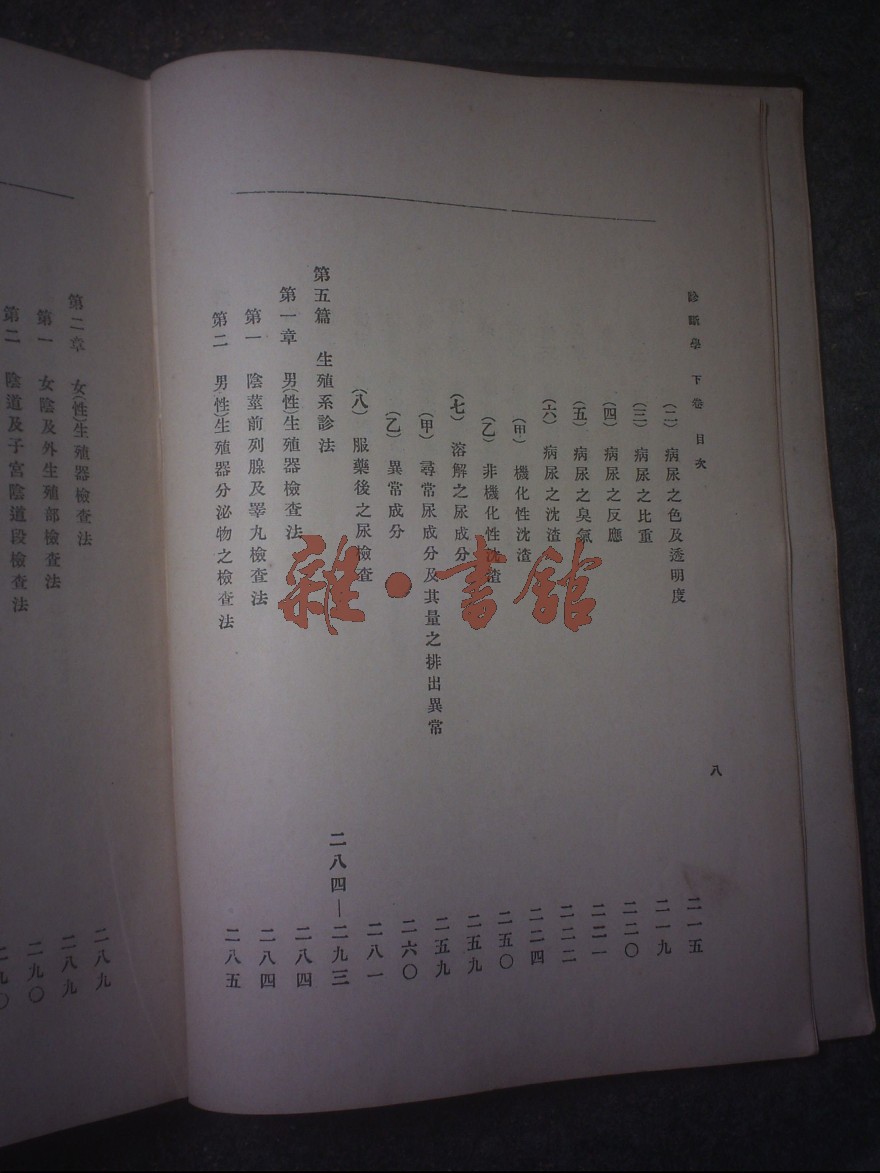 診斷學 下卷 目次 八
（二） 病尿之色及透明度 二一五
（三） 病尿之比重 二一九
（四） 病尿之反應 二二〇
（五） 病尿之臭氣 二二一
（六） 病尿之沈渣 二二二
（甲） 機化性沈渣 二二四
（乙） 非機化性沈渣 二五〇
（七） 溶解之尿成分 二五九
（甲） 尋常尿成分及其量之排出異常 二五九
（乙） 異常成分 二六〇
（八） 服藥後之尿檢查 二八一
第五篇 生殖系診法 二八四—二九三
第一章 男(性)生殖器檢查法 二八四
第一 陰莖前列腺及睾丸檢查法 二八四
第二 男(性)生殖器分泌物之檢查法 二八五
第二章 女(性)生殖器檢查法 二八九
第一 女陰及外生殖部檢查法 二八九
第二 陰道及子宮陰道段檢查法 二九〇
雜·書館